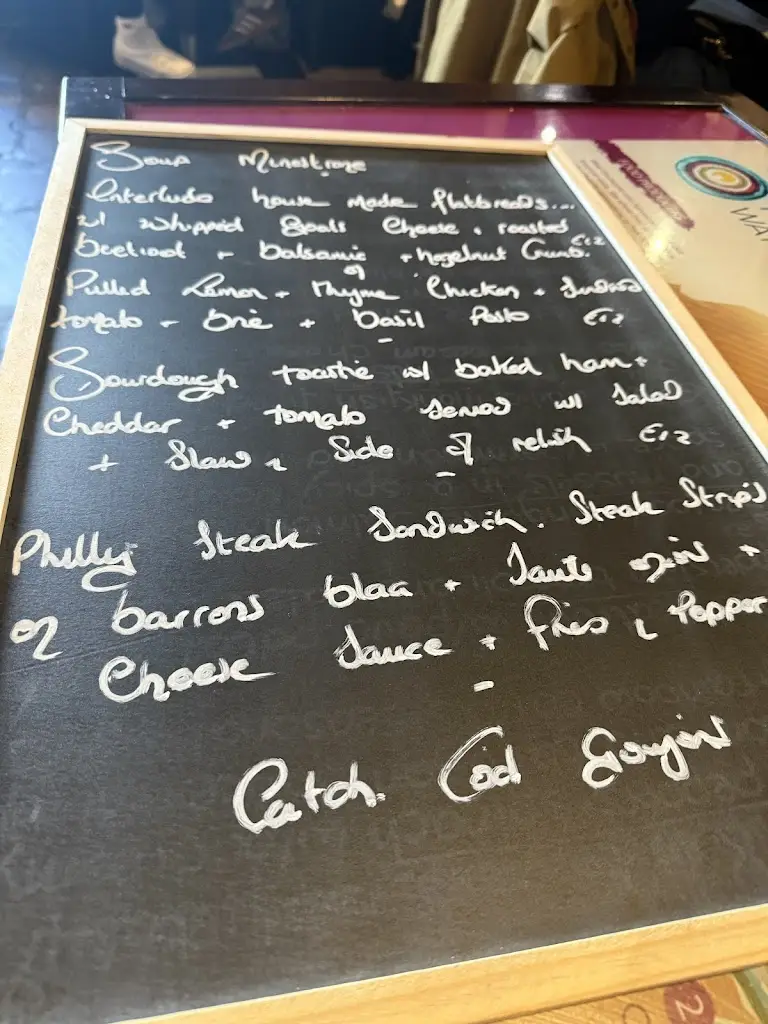 Soup Minestrone
Interlude house made flatbreads...
w/ whipped Goats Cheese + roasted
beetroot + balsamic + hazelnut Crumb. €12
or
Pulled Lemon + Thyme Chicken + Sundried
tomato + brie + basil Pesto €12
-
Sourdough toastie w/ baked ham +
Cheddar + tomato served w/ Salad
+ Slaw + Side of relish €12
-
Philly Steak Sandwich. Steak Strips
on barrons blaa + Sauté +
Cheese Sauce + fries + Pepper
-
Catch. Cod Goujons
2